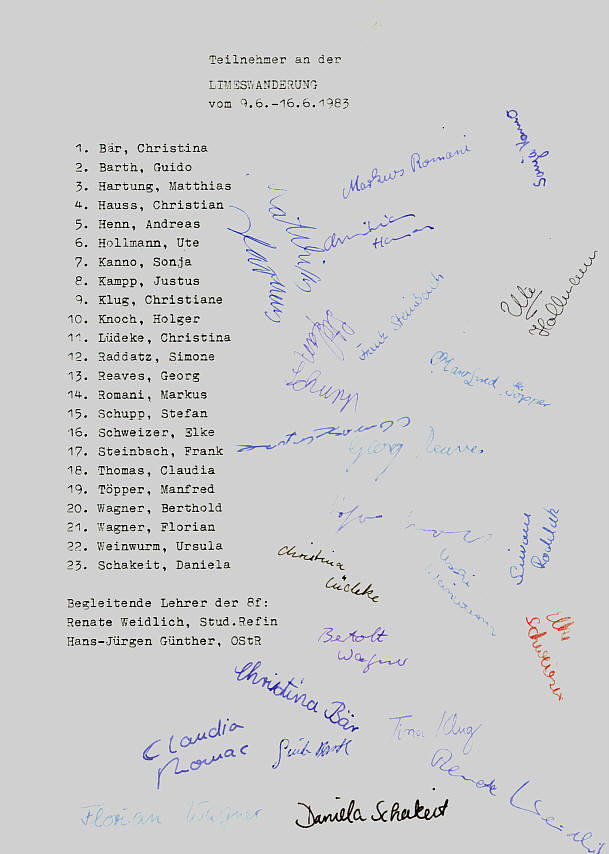 Teilnehmer an der
LIMESWANDERUNG
vom 9.6.-16.6.1983
1. Bär, Christina
2. Barth, Guido
3. Hartung, Matthias
4. Hauss, Christian
5. Henn, Andreas
6. Hollmann, Ute
7. Kanno, Sonja
8. Kampp, Justus
9. Klug, Christiane
10. Knoch, Holger
11. Lüdeke, Christina
12. Raddatz, Simone
13. Reaves, Georg
14. Romani, Markus
15. Schupp, Stefan
16. Schweizer, Elke
17. Steinbach, Frank
18. Thomas, Claudia
19. Töpper, Manfred
20. Wagner, Berthold
21. Wagner, Florian
22. Weinwurm, Ursula
23. Schakeit, Daniela
Begleitende Lehrer der 8f:
Renate Weidlich, Stud.Refin
Hans-Jürgen Günther, OStR
Sonja Kanno
Markus Romani
Matthias
Hartung
Ute
Hollmann
Frank Steinbach
Stefan
Schupp
Manfred Töpper
Georg Reaves
Simone
Raddatz
Christina
Lüdeke
Uschi
Weinwurm
Elke
Schweizer
Betolt
Wagner
Christina Bär
Tina Klug
Claudia
Thomas
Guido Barth
Renate Weidlich
Florian Wagner
Daniela Schakeit